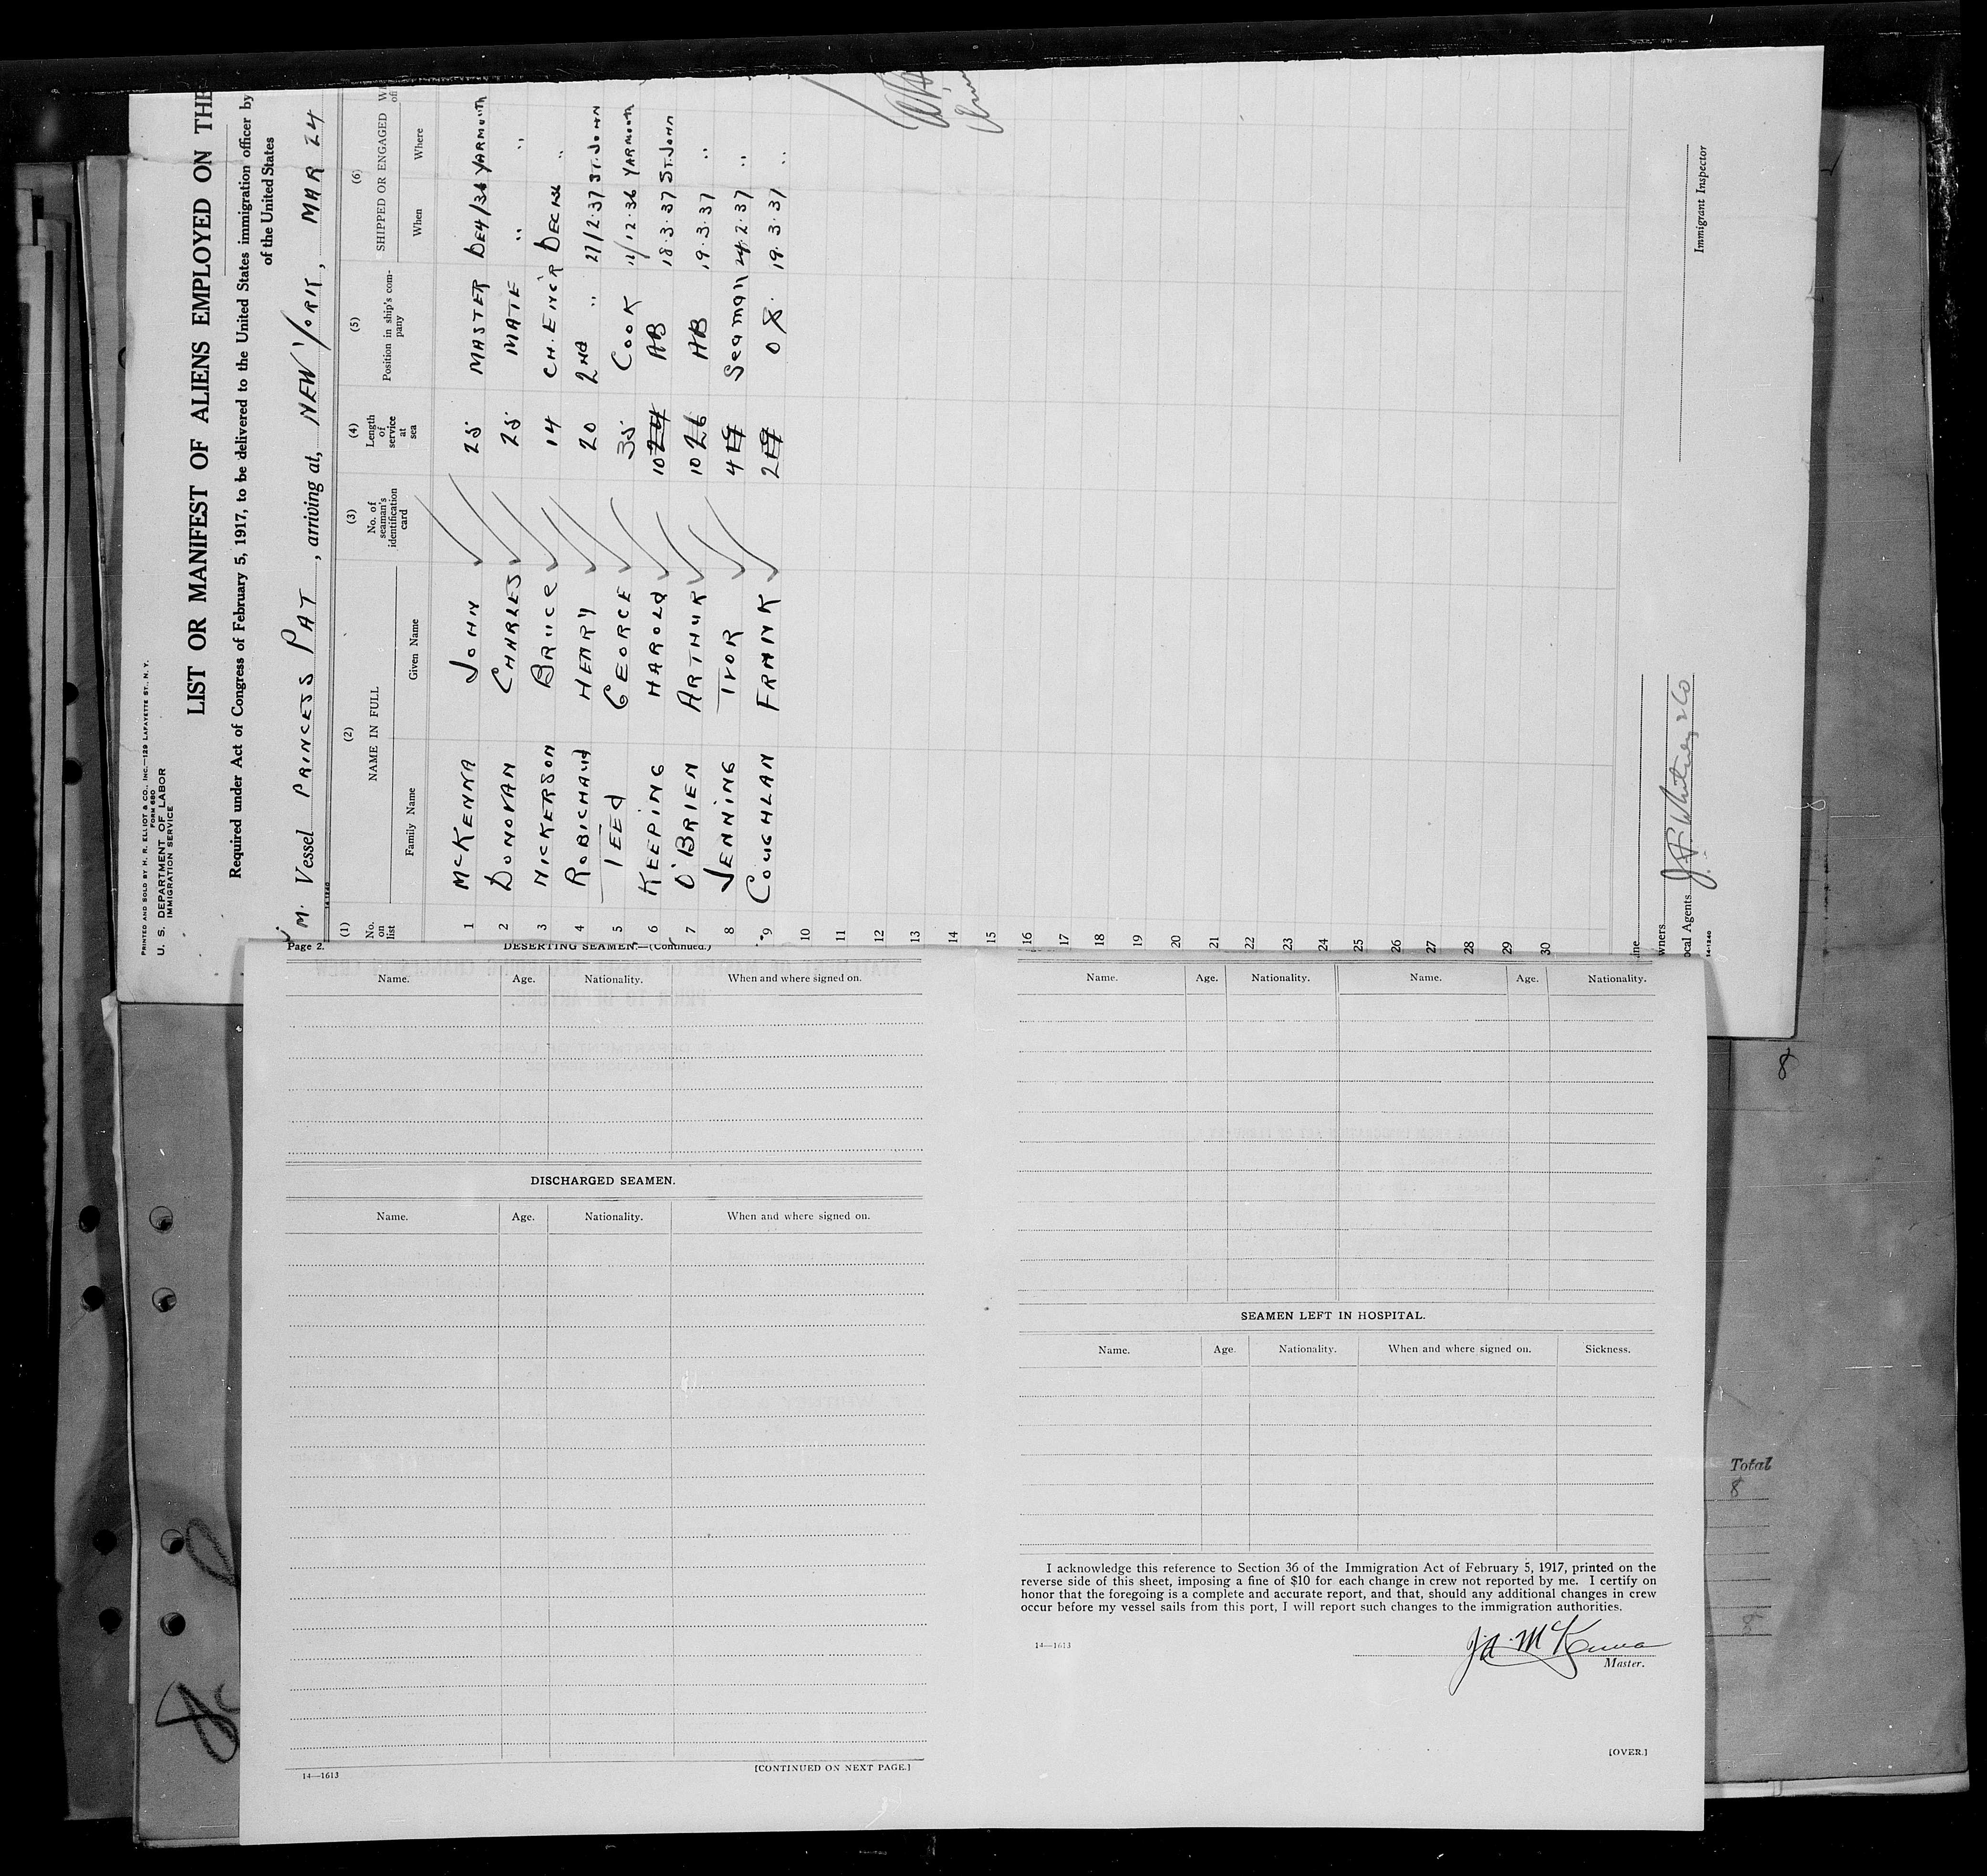 PRINTED AND SOLD BY H. R. ELLIOT & CO., INC.—129 LAFAYETTE ST., N. Y.
U. S. DEPARTMENT OF LABOR
FORM 680
IMMIGRATION SERVICE
LIST OR MANIFEST OF ALIENS EMPLOYED ON THE
Required under Act of Congress of February 5, 1917, to be delivered to the United States immigration officer by
of the United States
M. Vessel PRINCESS PAT, arriving at, NEW YORK, MAR 24
14-1240
(1) (2) (3) (4) (5) (6)
No. on list NAME IN FULL No. of seaman's identification card Length of service at sea Position in ship's company SHIPPED OR ENGAGED
Family Name Given Name When Where
1 McKENNA JOHN 25 MASTER DE4/36 YARMOUTH
2 DONOVAN CHARLES 25 MATE " "
3 NICKERSON BRUCE 14 CH. ENG'R DEC 36 "
4 ROBICHAUD HENRY 20 2ND " 27/2.37 ST. JOHN
5 TEED GEORGE 35 COOK 12/12.36 YARMOUTH
6 KEEPING HAROLD 10 24 AB 18.3.37 ST. JOHN
7 O'BRIEN ARTHUR 10 26 AB 19.3.37 "
8 JENNING IVOR 4 19 Seaman 24.2.37 "
9 COUGHLAN FRANK 2 19 O S. 19.3.37 "
10
11
12
13
14
15
16
17
18
19
20
21
22
23
24
25
26
27
28
29
30
ine
wners
ocal Agents J. F. Whitney & Co
14-1240
Immigrant Inspector
Page 2.
DESERTING SEAMEN.—(Continued.)
Name. Age. Nationality. When and where signed on.
DISCHARGED SEAMEN.
Name. Age. Nationality. When and where signed on.
14—1613
[CONTINUED ON NEXT PAGE.]
Name. Age. Nationality. Name. Age. Nationality.
SEAMEN LEFT IN HOSPITAL.
Name. Age. Nationality. When and where signed on. Sickness.
I acknowledge this reference to Section 36 of the Immigration Act of February 5, 1917, printed on the
reverse side of this sheet, imposing a fine of $10 for each change in crew not reported by me. I certify on
honor that the foregoing is a complete and accurate report, and that, should any additional changes in crew
occur before my vessel sails from this port, I will report such changes to the immigration authorities.
14—1613
J A McKenna
Master.
[OVER.]
8
Total
8
8